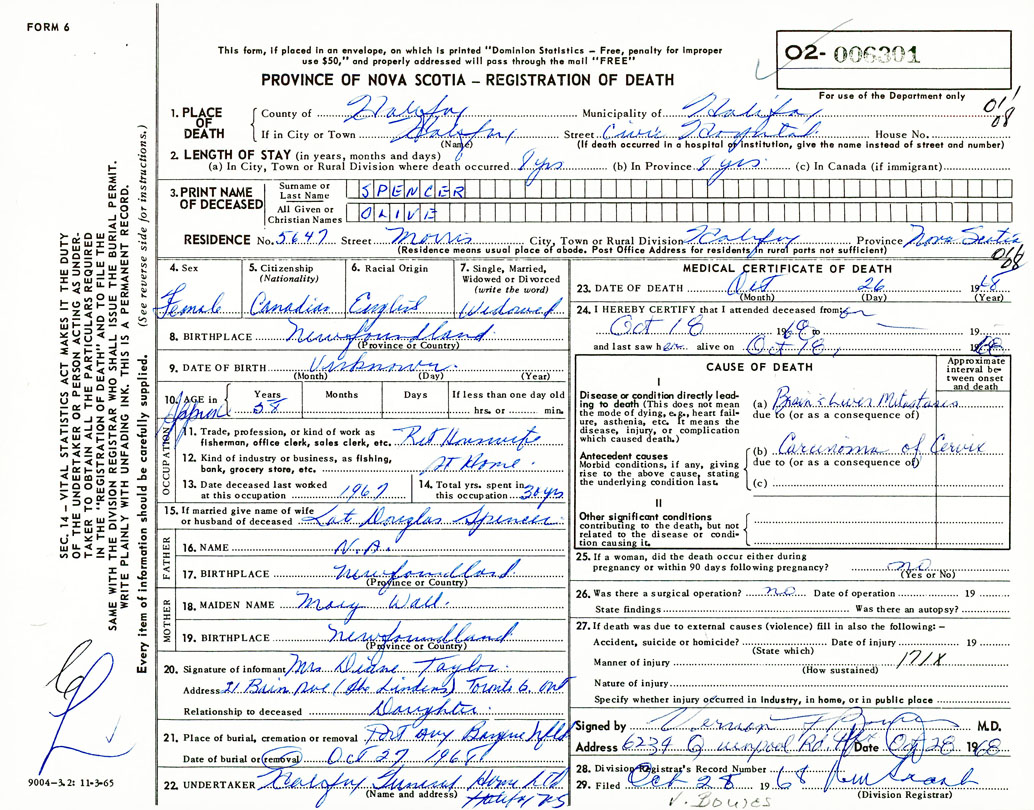 FORM 6
This form, if placed in an envelope, on which is printed "Dominion Statistics – Free, penalty for improper
use $50," and properly addressed will pass through the mail "FREE"
PROVINCE OF NOVA SCOTIA – REGISTRATION OF DEATH
O2- 006301
For use of the Department only
1. PLACE OF DEATH
County of Halifax Municipality of Halifax
If in City or Town Halifax Street Civic Hospital House No.
(Name) (If death occurred in a hospital or institution, give the name instead of street and number)
2. LENGTH OF STAY (in years, months and days)
(a) In City, Town or Rural Division where death occurred 8 yrs (b) In Province 8 yrs. (c) In Canada (if immigrant)
3. PRINT NAME OF DECEASED
Surname or Last Name SPENCER
All Given or Christian Names OLIVE
RESIDENCE No. 5647 Street Morris City, Town or Rural Division Halifax Province Nova Scotia
(Residence means usual place of abode. Post Office Address for residents in rural parts not sufficient)
4. Sex Female
5. Citizenship (Nationality) Canadian
6. Racial Origin English
7. Single, Married, Widowed or Divorced (write the word) Widowed
8. BIRTHPLACE Newfoundland
(Province or Country)
9. DATE OF BIRTH Unknown
(Month) (Day) (Year)
10. AGE in Approx Years 58 Months Days If less than one day old
hrs. or min.
OCCUPATION
11. Trade, profession or kind of work as
fisherman, office clerk, sales clerk, etc. Ret Housewife
12. Kind of industry or business, as fishing,
bank, grocery store, etc. At Home.
13. Date deceased last worked
at this occupation 1967
14. Total yrs. spent in
this occupation 30 yrs
15. If married give name of wife
or husband of deceased Lat Douglas Spencer
FATHER
16. NAME N.A.
17. BIRTHPLACE Newfoundland
(Province or Country)
MOTHER
18. MAIDEN NAME Mary Wall.
19. BIRTHPLACE Newfoundland
(Province or Country)
20. Signature of informant Mrs Diane Taylor
Address (The Lindens) Toronto 6, Ont
Relationship to deceased Daughter.
21. Place of burial, cremation or removal Port Aux Basque Nfld
Date of burial or removal Oct 27, 1968
22. UNDERTAKER Halifax Funeral Home Ltd
(Name and address) Halifax NS
MEDICAL CERTIFICATE OF DEATH
23. DATE OF DEATH Oct 26 1968
(Month) (Day) (Year)
24. I HEREBY CERTIFY that I attended deceased from:
Oct 18 1968 to 19
and last saw her alive on Oct 18, 1968
CAUSE OF DEATH
Approximate interval between onset and death
I
Disease or condition directly leading to death (This does not mean the mode of dying, e.g., heart failure, asthenia, etc. It means the disease, injury, or complication which caused death.)
(a) Brain & Liver Metastasis
due to (or as a consequence of)
Antecedent causes
Morbid conditions, if any, giving rise to the above cause, stating the underlying condition last.
(b) Carcinoma of Cervix
due to (or as a consequence of)
(c)
II
Other significant conditions
contributing to the death, but not related to the disease or condition causing it.
25. If a woman, did the death occur either during
pregnancy or within 90 days following pregnancy? no
(Yes or No)
26. Was there a surgical operation? no Date of operation 19
State findings Was there an autopsy?
27. If death was due to external causes (violence) fill in also the following: –
Accident, suicide or homicide? Date of injury 19
(State which)
Manner of injury 171X
(How sustained)
Nature of injury
Specify whether injury occurred in Industry, in home, or in public place
Signed by Vernon M.D.
Address 6239 Quinpool Rd. Hfx Date Oct 28 1968
28. Division Registrar's Record Number
29. Filed Oct 28 1968
(Division Registrar)
SEC. 14 – VITAL STATISTICS ACT MAKES IT THE DUTY
OF THE UNDERTAKER OR PERSON ACTING AS UNDER-
TAKER TO OBTAIN ALL THE PARTICULARS REQUIRED
IN THE "REGISTRATION OF DEATH" AND TO FILE THE
SAME WITH THE DIVISION REGISTRAR WHO SHALL ISSUE THE BURIAL PERMIT.
WRITE PLAINLY WITH UNFADING INK. THIS IS A PERMANENT RECORD.
Every item of information should be carefully supplied. (See reverse side for instructions.)
9004-3.2: 11-3-65